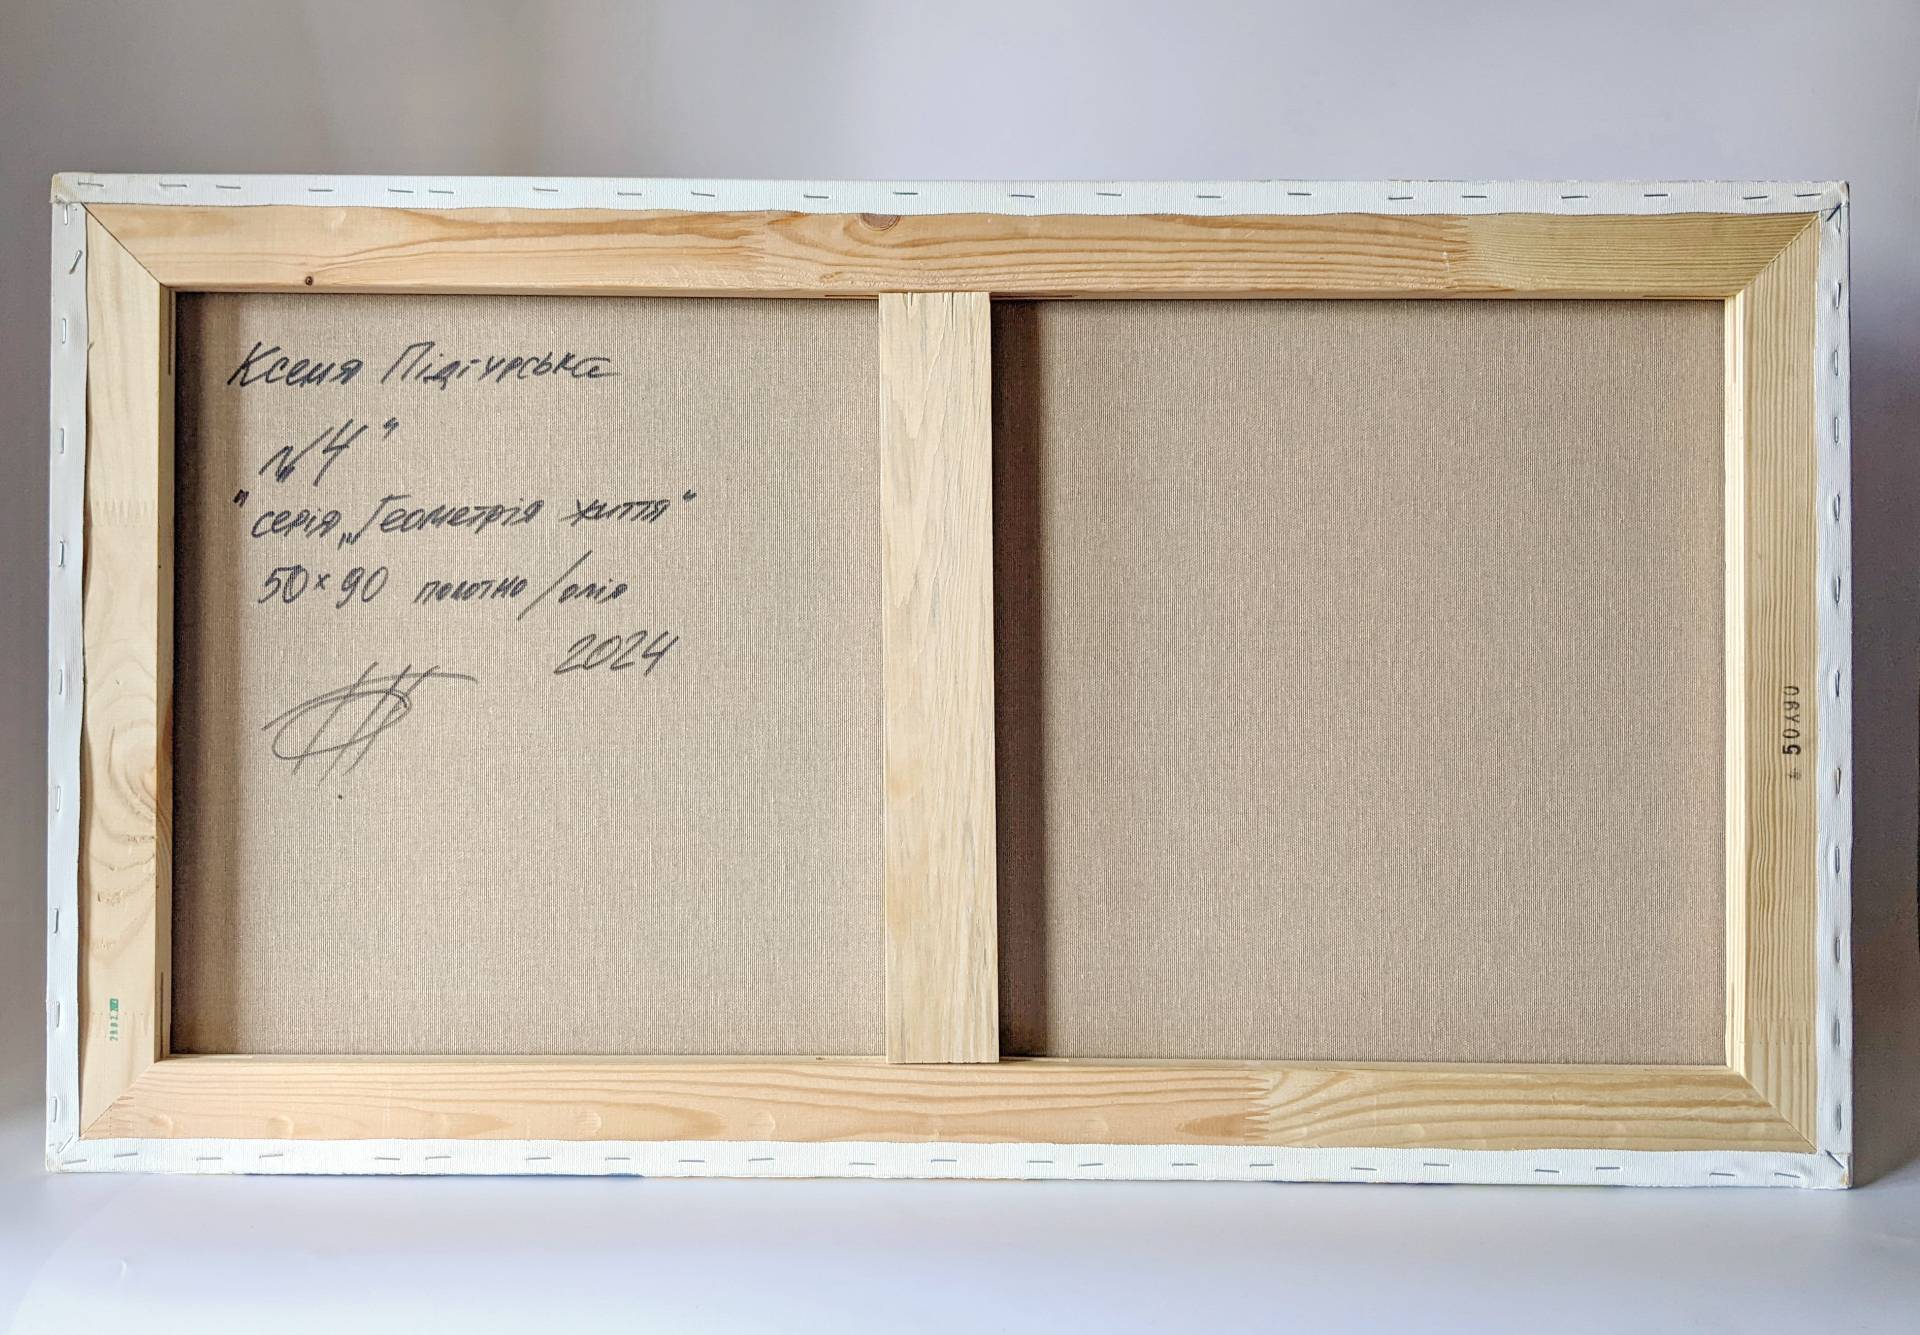 Ксеня Підгурська
№4"
"серія „Геометрія життя"
50×90 полотно/олія
2024
50х90